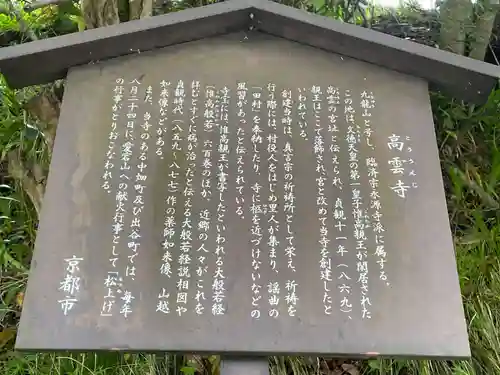 高雲寺
こううんじ
九龍山と号し、臨済宗永源寺派に属する。
この地は、文徳天皇の第一皇子惟喬親王が閑居された
高雲の宮址と伝えられ、貞観十一年(八六九)
親王はここで落飾され、宮と改めて当寺を創建したと
いわれている。
創建当時は、真言宗の祈祷所として栄え、祈祷を
行う際には、村役人をはじめ里人が集まり、謡曲の
「田村」を奉納したり、寺に柩を近づけないなどの
風習があったと伝えられている。
寺宝には、惟喬親王が書写したといわれる大般若経
(惟高般若)六百巻のほか、近郷の人々がこれを
経むと病が治ったと伝える大般若経説相図や
貞観時代(八五九〜八七七)作の薬師如来像、山越
如来像などがある。
また、当寺のある中畑町及び出谷町では、毎年
八月二十四日に、愛宕山への献火行事として「松上げ」
の行事がとりおこなわれる。
京都市